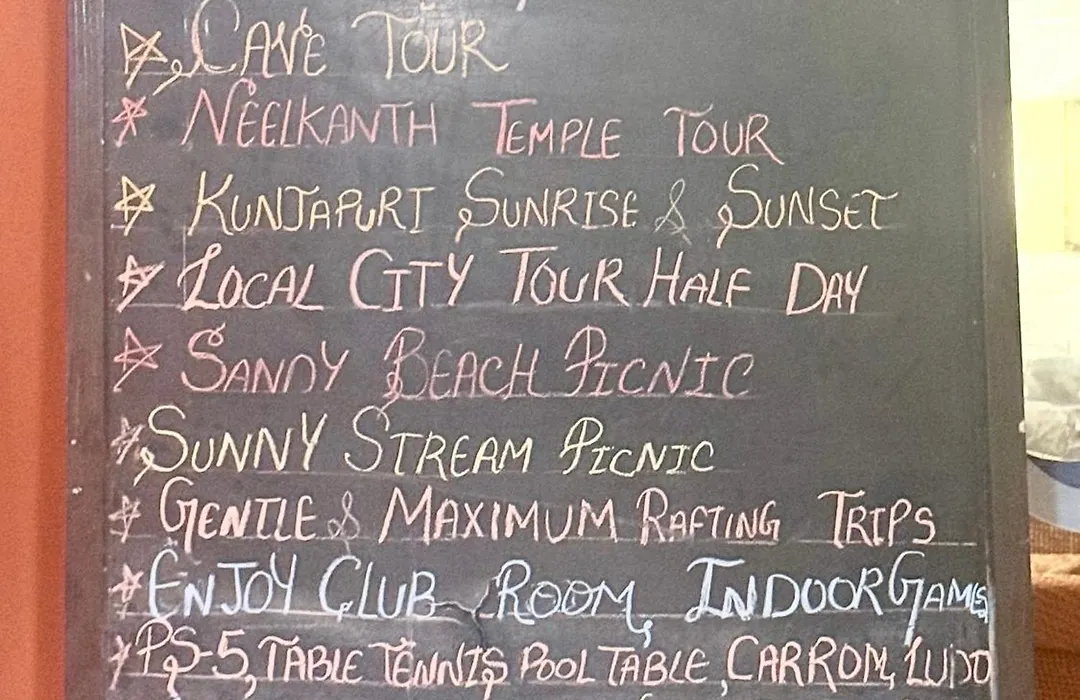 CAVE TOUR
NEELKANTH TEMPLE TOUR
KUNJAPURI SUNRISE & SUNSET
LOCAL CITY TOUR HALF DAY
SANDY BEACH PICNIC
SUNNY STREAM PICNIC
GENTLE & MAXIMUM RAFTING TRIPS
ENJOY CLUB ROOM, INDOOR GAMES
PS-5, TABLE TENNIS POOL TABLE, CARROM, LUDO